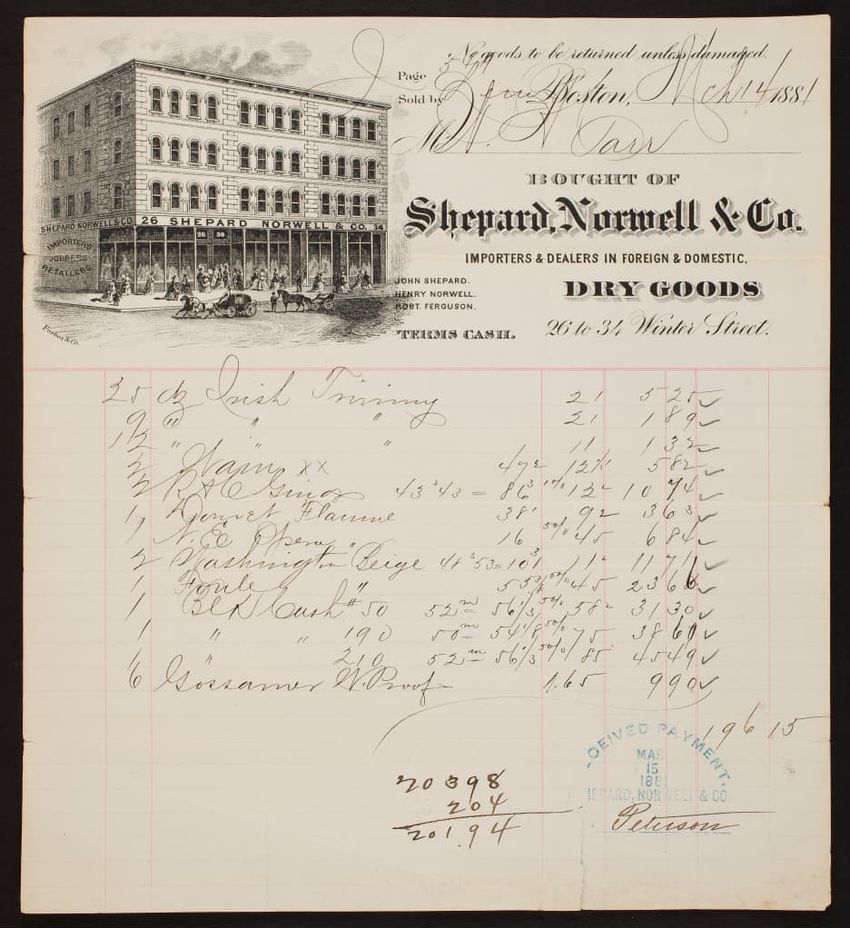 No goods to be returned unless damaged.
Page
Sold by
Boston, Mch 14 1881
M W. Tarr
BOUGHT OF
Shepard, Norwell & Co.
IMPORTERS & DEALERS IN FOREIGN & DOMESTIC.
DRY GOODS
JOHN SHEPARD.
HENRY NORWELL.
ROBT. FERGUSON.
TERMS CASH.
26 to 34 Winter Street.
SHEPARD NORWELL & CO. 26 SHEPARD NORWELL & CO. 34
26 30
IMPORTERS
JOBBERS
RETAILERS
Forbes & Co.
25 dz Irish Trimmg 21 5 25
9 " " " 21 1 89
12 " " " 11 1 32
2 xx 47 2 12 1/2 5 82
2 43 2 43 = 86 3 12 2 10 74
1 38 1 9 2 3 63
1 16 45 6 84
2 Washington Beige 48 2 53 = 101 3 11 2 11 71
1 Foule " 45 23 66
1 Blk Cash # 50 52 m 56 1/3 58 2 31 30
1 " " 190 50 m 54 1/8 75 38 60
1 " 210 52 m 56 1/3 85 45 49
6 Gossamer W. Proof 1.65 9 90
196 15
20398
204
201.94
CEIVED PAYMENT
MAR
15
188
EPARD, NORWELL & CO.
Peterson